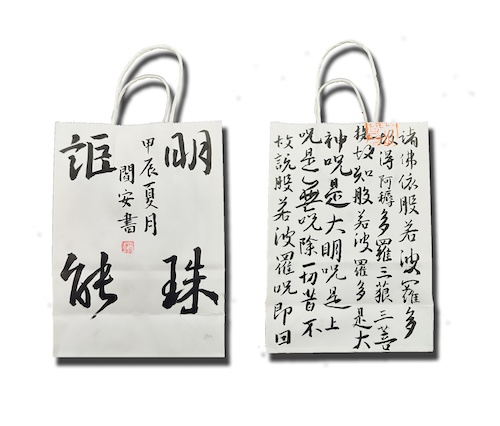 明珠
詎能
甲辰夏月
間安書
諸佛依般若波羅多
故得阿耨多羅三藐三菩
提故知般若波羅多是大
神呪是大明呪是上
呪是無呪除一切苦不
故說般若波羅呪即曰